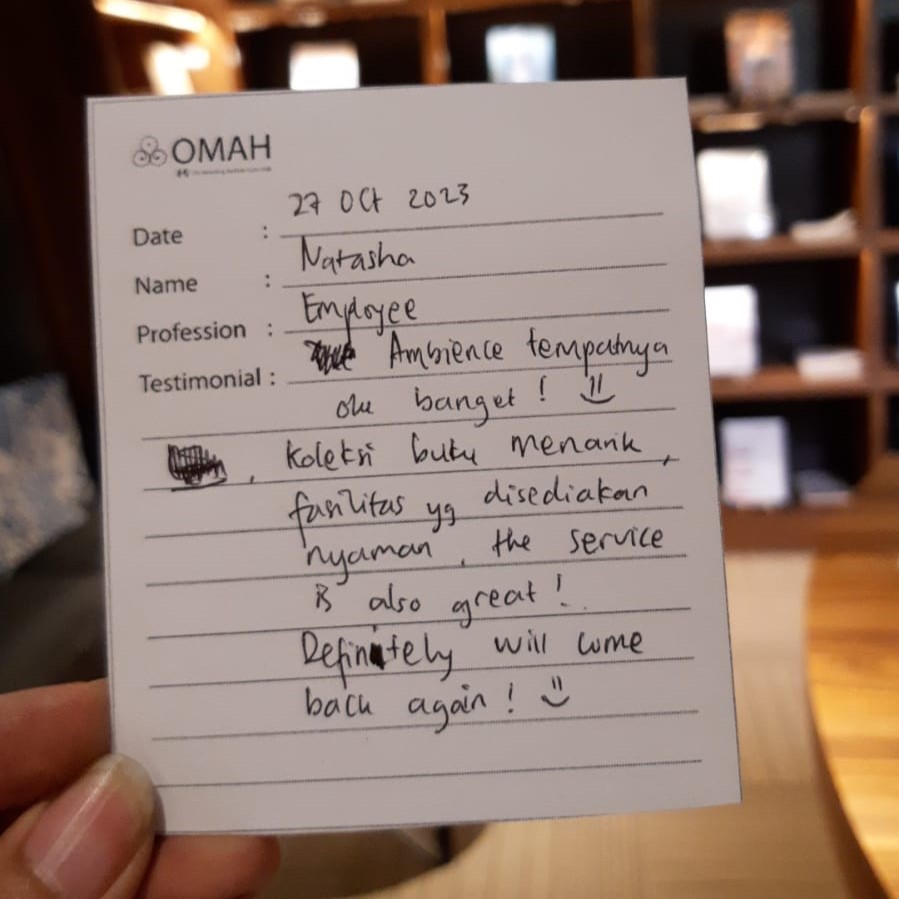 OMAH
27 Oct 2023
Date :
Natasha
Name :
Employee
Profession :
Ambience tempatnya
Testimonial :
oke banget! =)
, koleksi buku menarik,
fasilitas yg disediakan
nyaman, the service
is also great!
Definitely will come
back again! =)